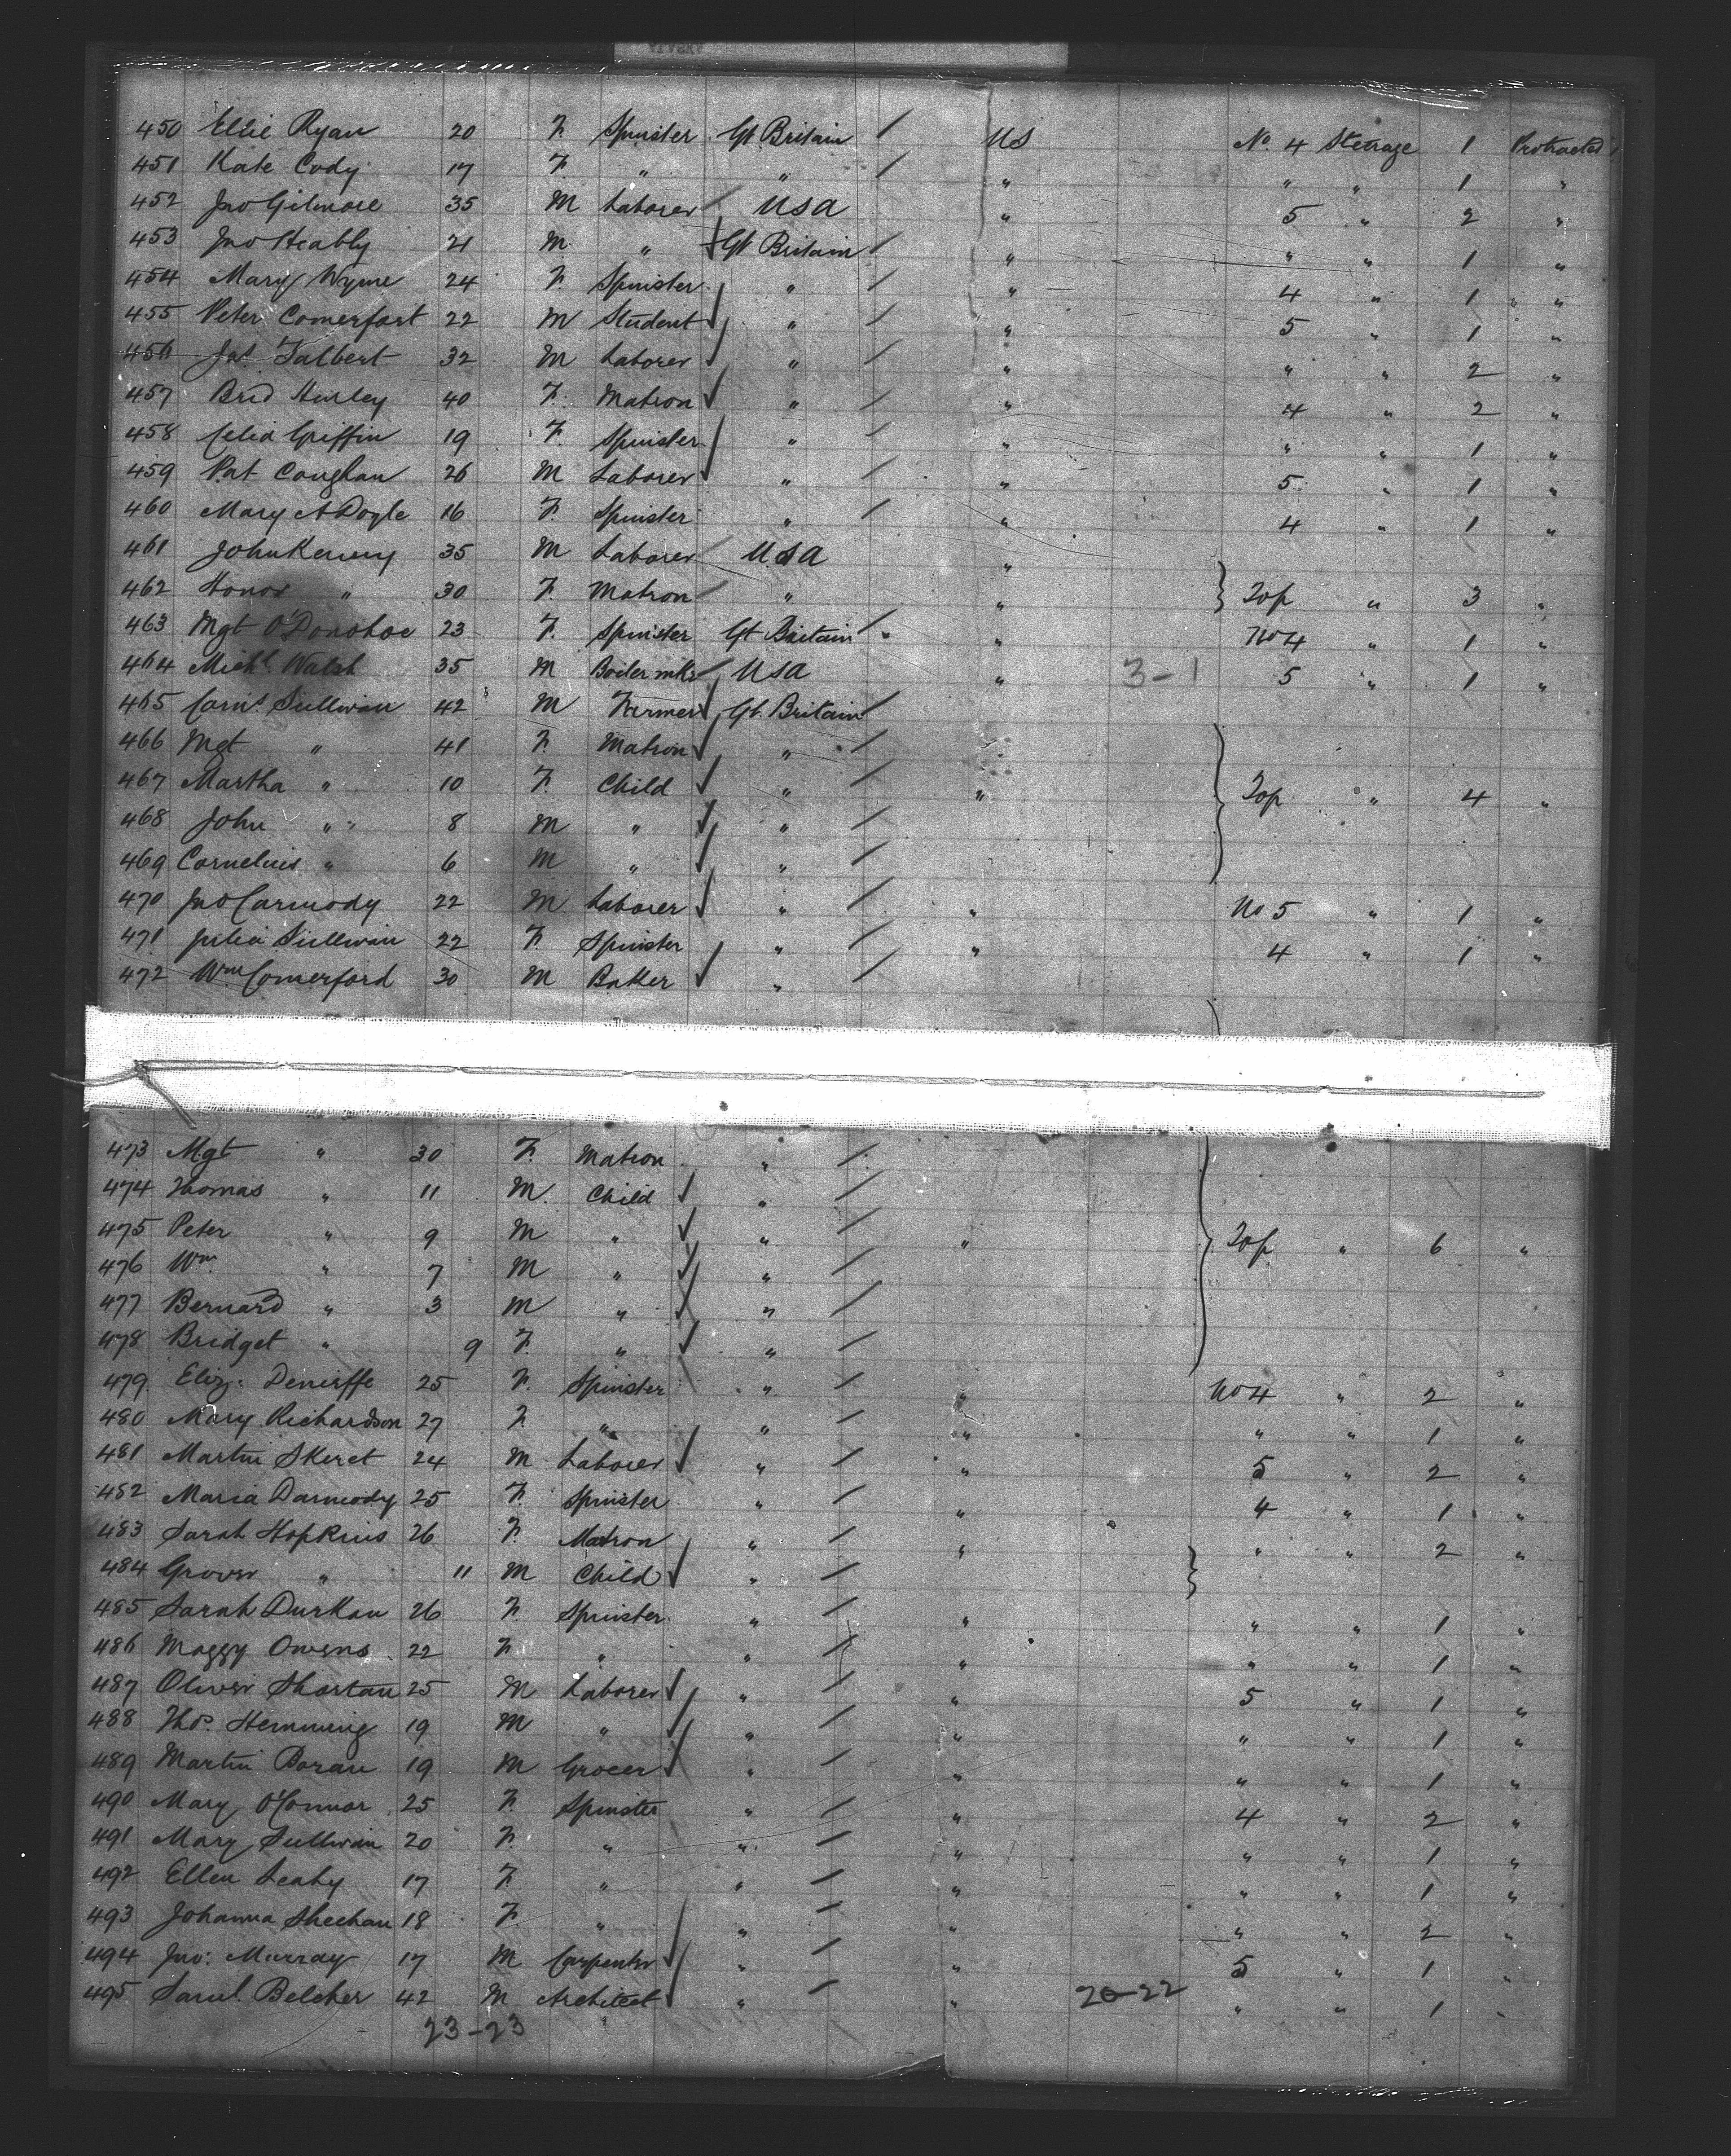 450 Ellie Ryan 20 F. Spinster Gt Britain / US No 4 Steerage 1 Protracted
451 Kate Cody 17 F. " " / " " " 1 "
452 Jno Gilmore 35 M Laborer / USA " 5 " 2 "
453 Jno Heably 21 M " Gt Britain / " " " 1 "
454 Mary Wynne 24 F. Spinster " / " 4 " 1 "
455 Peter Comerfort 22 M Student " / " 5 " 1 "
456 Jas Talbert 32 M Laborer " / " " " 2 "
457 Brid Hurley 40 F. Matron " / " 4 " 2 "
458 Celia Griffin 19 F. Spinster " / " " " 1 "
459 Pat Coughan 26 M Laborer " / " 5 " 1 "
460 Mary A Doyle 16 F. Spinster " / " 4 " 1 "
461 John Kenny 35 M Laborer / USA "
462 Honor " 30 F. Matron / " " Top " 3 "
463 Mgt O'Donohoe 23 F. Spinster Gt Britain / " " No 4 " 1 "
464 Michl. Walsh 35 M Boiler mkr / USA " 3-1 5 " 1 "
465 Corns. Sullivan 42 M Farmer Gt. Britain /
466 Mgt " 41 F. Matron " /
467 Martha " 10 F. Child " / " Top " 4 "
468 John " " 8 M " " /
469 Cornelius " 6 M " " /
470 Jno Carmody 22 M Laborer " / " No 5 " 1 "
471 Julia Sullivan 22 F. Spinster " / " 4 " 1 "
472 Wm Comerford 30 M Baker " /
473 Mgt " 30 F. Matron " /
474 Thomas " 11 M. Child " /
475 Peter " 9 M " " / " Top " 6 "
476 Wm. " 7 M " " /
477 Bernard " 3 M " " /
478 Bridget " 9 F. " " /
479 Eliz. Denieffe 25 F. Spinster " / " No 4 " 2 "
480 Mary Richardson 27 F. " " / " " " 1 "
481 Martin Skeret 24 M Laborer " / " 5 " 2 "
482 Maria Darmody 25 F. Spinster " / " 4 " 1 "
483 Sarah Hopkins 26 F. Matron " / " " " 2 "
484 Grover " 11 M Child " /
485 Sarah Durkan 26 F. Spinster " / " " " 1 "
486 Maggy Owens 22 F " " / " " " 1 "
487 Oliver Shortan 25 M Laborer " / " 5 " 1 "
488 Thos. Hemming 19 M " " / " " " 1 "
489 Martin Boran 19 M Grocer " / " " " 1 "
490 Mary O'Connor 25 F. Spinster " / " 4 " 2 "
491 Mary Sullivan 20 F. " " / " " " 1 "
492 Ellen Leahy 17 F. " " / " " " 1 "
493 Johanna Sheehan 18 F. " " / " " " 2 "
494 Jno: Murray 17 M Carpenter " / " 5 " 1 "
495 Saml. Belcher 42 M Architect " / " 20-22 " " 1 "
23-23